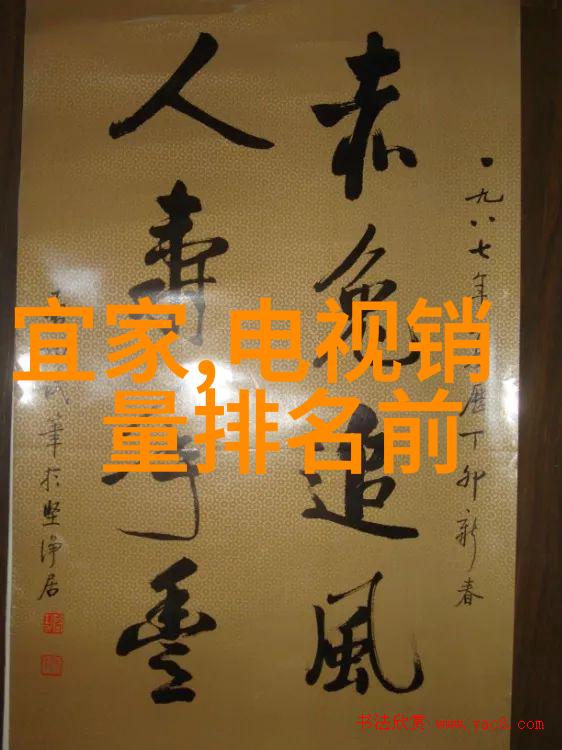 宜家,电视销
量排名前
一九八七年 曆丁卯新春
赤兔追風
人壽 豐
筆於堅淨居
书法欣赏 www.yac8.com